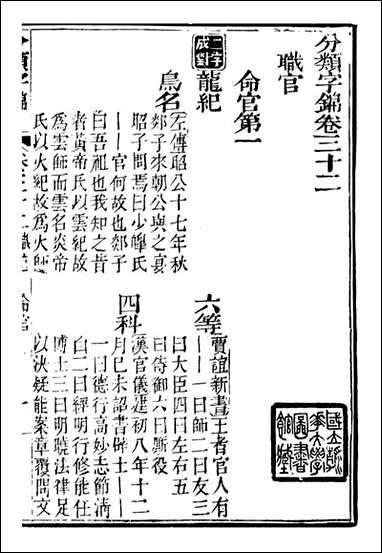 分類字錦卷三十二
職官
命官第一
二字成對
龍紀
鳥名
左傳昭公十七年秋
郯子來朝公與之宴
昭子問焉曰少皥氏
——官何故也郯子
曰吾祖也我知之昔
者黃帝氏以雲紀故
爲雲師而雲名炎帝
氏以火紀故爲火師
六等
賈誼新書王者官人有
——一曰師二曰友三
曰大臣四曰左右五
曰侍御六曰厮役
四科
漢官儀建初八年十二
月己未詔書辟士——
一曰德行高妙志節清
白二曰經明行修能任
博士三曰明曉法律足
以決疑能案章覆問文
國立清
華大學
圖書
館藏